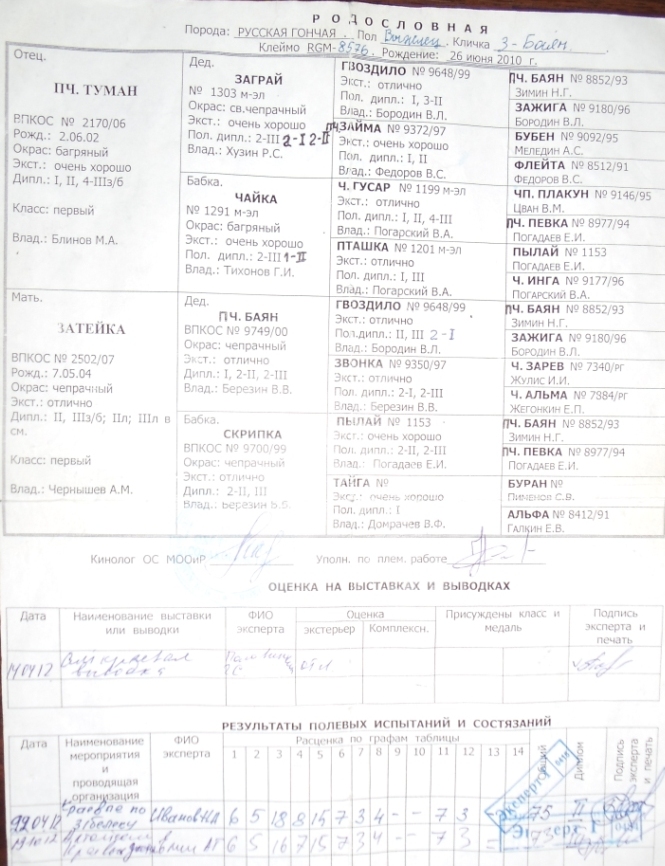 РОДОСЛОВНАЯ
Порода: РУССКАЯ ГОНЧАЯ . Пол Выжлец. Кличка З-Баян.
Клеймо RGM-8576. Рождение: 26 июня 2010 г.
Отец.
ПЧ. ТУМАН
ВПКОС № 2170/06
Рожд.: 2.06.02
Окрас: багряный
Экст.: очень хорошо
Дипл.: I, II, 4-IIIз/б
Класс: первый
Влад.: Блинов М.А.
Мать.
ЗАТЕЙКА
ВПКОС № 2502/07
Рожд.: 7.05.04
Окрас: чепрачный
Экст.: отлично
Дипл.: II, IIIз/б; IIл; IIIл в
см.
Класс: первый
Влад.: Чернышев А.М.
Дед.
ЗАГРАЙ
№ 1303 м-эл
Окрас: св.чепрачный
Экст.: очень хорошо
Пол. дипл.: 2-III 2-I 2-II
Влад.: Хузин Р.С.
Бабка.
ЧАЙКА
№ 1291 м-эл
Окрас: багряный
Экст.: очень хорошо
Пол. дипл.: 2-III 1-II
Влад.: Тихонов Г.И.
Дед.
ПЧ. БАЯН
ВПКОС № 9749/00
Окрас: чепрачный
Экст.: отлично
Дипл.: I, 2-II, 2-III
Влад.: Березин В.В.
Бабка.
СКРИПКА
ВПКОС № 9700/99
Окрас: чепрачный
Экст.: отлично
Дипл.: 2-II, III
Влад.: Березин В.В.
ГВОЗДИЛО № 9648/99
Экст.: отлично
Пол. дипл.: I, 3-II
Влад.: Бородин В.Л.
ПЧ. ЗАЙМА № 9372/97
Экст.: очень хорошо
Пол. дипл.: I, II
Влад.: Федоров В.С.
Ч. ГУСАР № 1199 м-эл
Экст.: отлично
Пол. дипл.: I, II, 4-III
Влад.: Погарский В.А.
ПТАШКА № 1201 м-эл
Экст.: отлично
Пол. дипл.: I, III
Влад.: Погарский В.А.
ГВОЗДИЛО № 9648/99
Экст.: отлично
Пол.дипл.: II, III 2-I
Влад.: Бородин В.Л.
ЗВОНКА № 9350/97
Экст.: отлично
Пол. дипл.: 2-I, 2-III
Влад.: Березин В.В.
ПЫЛАЙ № 1153
Экст.: очень хорошо
Пол. дипл.: 2-II, 2-III
Влад.: Погадаев Е.И.
ТАЙГА №
Экст.: очень хорошо
Пол. дипл.: I
Влад.: Домрачев В.Ф.
ПЧ. БАЯН № 8852/93
Зимин Н.Г.
ЗАЖИГА № 9180/96
Бородин В.Л.
БУБЕН № 9092/95
Меледин А.С.
ФЛЕЙТА № 8512/91
Федоров В.С.
ЧП. ПЛАКУН № 9146/95
Цван В.М.
ПЧ. ПЕВКА № 8977/94
Погадаев Е.И.
ПЫЛАЙ № 1153
Погадаев Е.И.
Ч. ИНГА № 9177/96
Погарский В.А.
ПЧ. БАЯН № 8852/93
Зимин Н.Г.
ЗАЖИГА № 9180/96
Бородин В.Л.
Ч. ЗАРЕВ № 7340/рг
Жулис И.И.
Ч. АЛЬМА № 7884/рг
Жегонкин Е.П.
ПЧ. БАЯН № 8852/93
Зимин Н.Г.
ПЧ. ПЕВКА № 8977/94
Погадаев Е.И.
БУРАН №
Пименов С.В.
АЛЬФА № 8412/91
Галкин Е.В.
Кинолог ОС МООиР Уполн. по плем. работе
ОЦЕНКА НА ВЫСТАВКАХ И ВЫВОДКАХ
Дата Наименование выставки или выводки ФИО эксперта Оценка экстерьер Комплексн. Присуждены класс и медаль Подпись эксперта и печать
выводка отл
РЕЗУЛЬТАТЫ ПОЛЕВЫХ ИСПЫТАНИЙ И СОСТЯЗАНИЙ
Дата Наименование мероприятия и проводящая организация ФИО эксперта Расценка по графам таблицы Общий Диплом Подпись эксперта и печать
1 2 3 4 5 6 7 8 9 10 11 12 13 14
220412 по з/беляку Иванов 6 5 18 8 15 7 3 4 - - 7 3 75 II
6 5 16 7 15 7 3 4 - - 7 3
Эксперт
Эксперт I